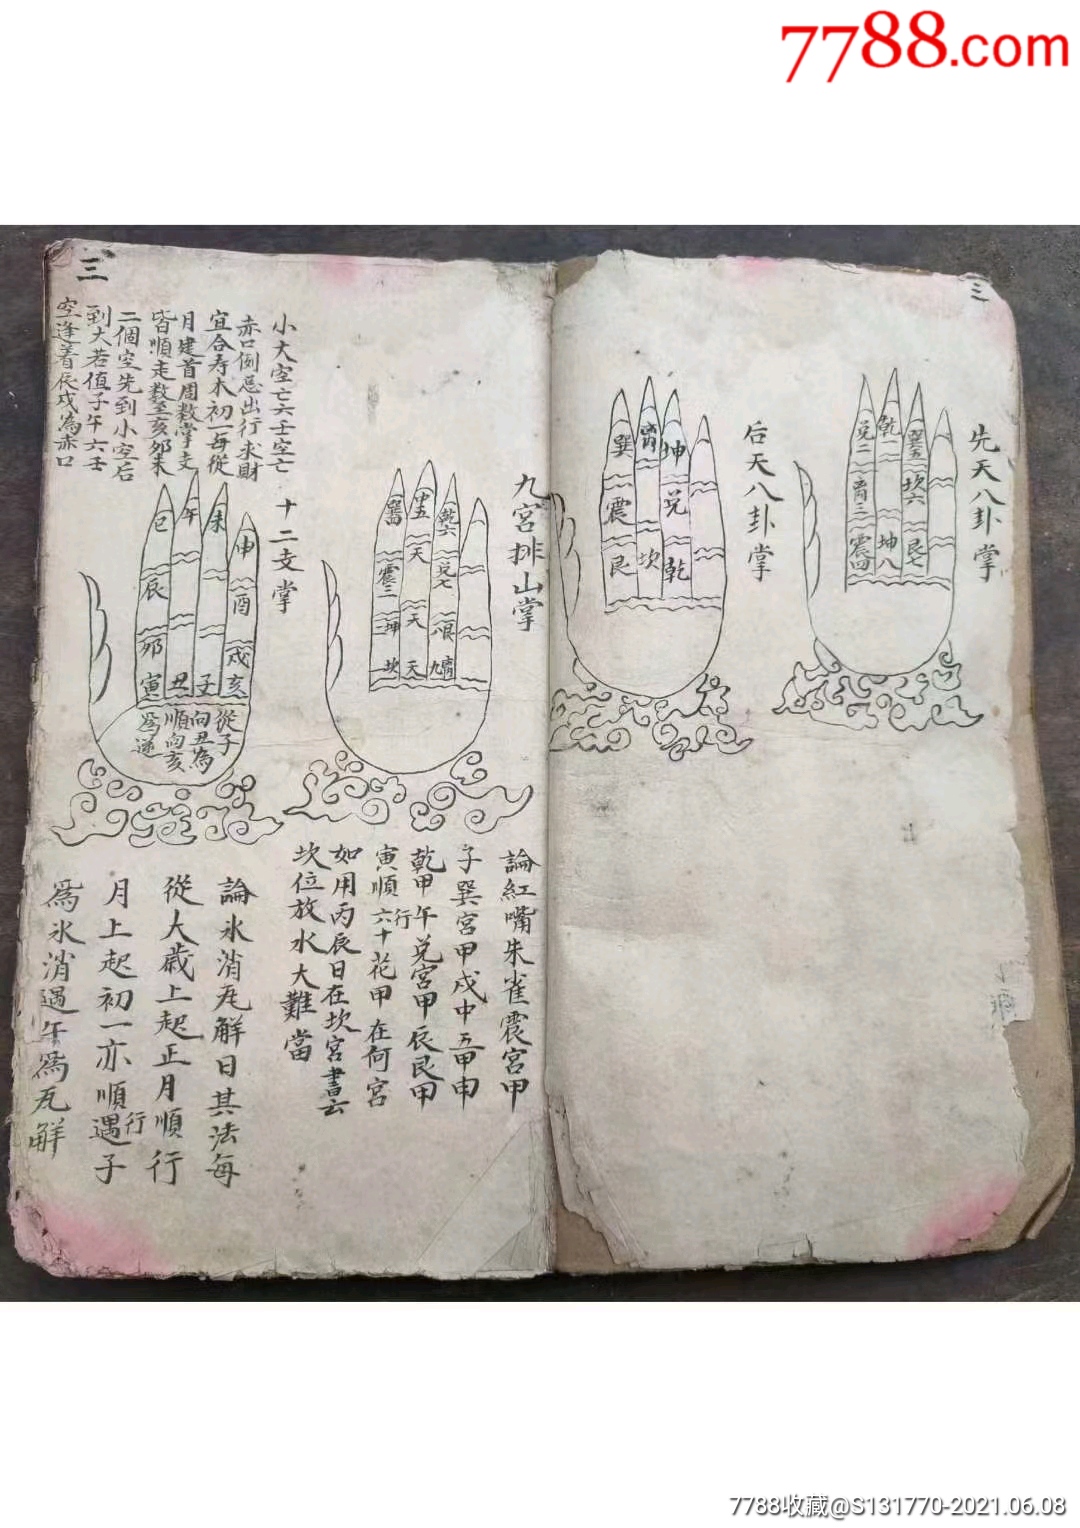 7788.com
三
先天八卦掌
兌二
乾一
巽五
離三
坎六
震四
坤八
艮七
后天八卦掌
巽
離
坤
震
兌
艮
坎
乾
三
九宮排山掌
中五
乾六
天
兌七
震三
天
坤
坎
天
離九
論紅嘴朱雀震宮甲
子巽宮甲戌中五甲申
乾甲午兌宮甲辰艮甲
寅順行六十花甲在何宮
如用丙辰日在坎宮書云
坎位放水大難當
小大空亡六壬空亡
赤口例忌出行求財
宜合寿木初一每從
月建首周数掌支
皆順走数至亥夘未
二個空先到小空后
到大若值子午六壬
空逢着辰戌為赤口
十二支掌
巳
午
未
申
辰
酉
夘
戌
寅
丑
子
亥
從子
向丑為
順向亥
為逆
論氷消瓦解日其法每
從大歲上起正月順行
月上起初一亦順行遇子
爲氷消遇午爲瓦解
7788收藏@S131770-2021.06.08